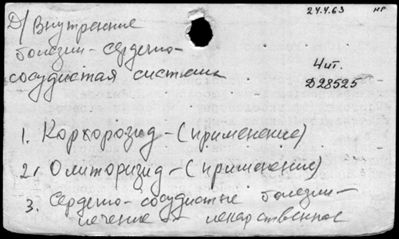 24.4.63 нг
Д/ Внутренние
болезни - сердечно-
сосудистая система
Чит.
D28525
1. Коркорозид - (применение)
2. Олиторизид - (применение)
3. Сердечно-сосудистые болезни -
лечение лекарственное